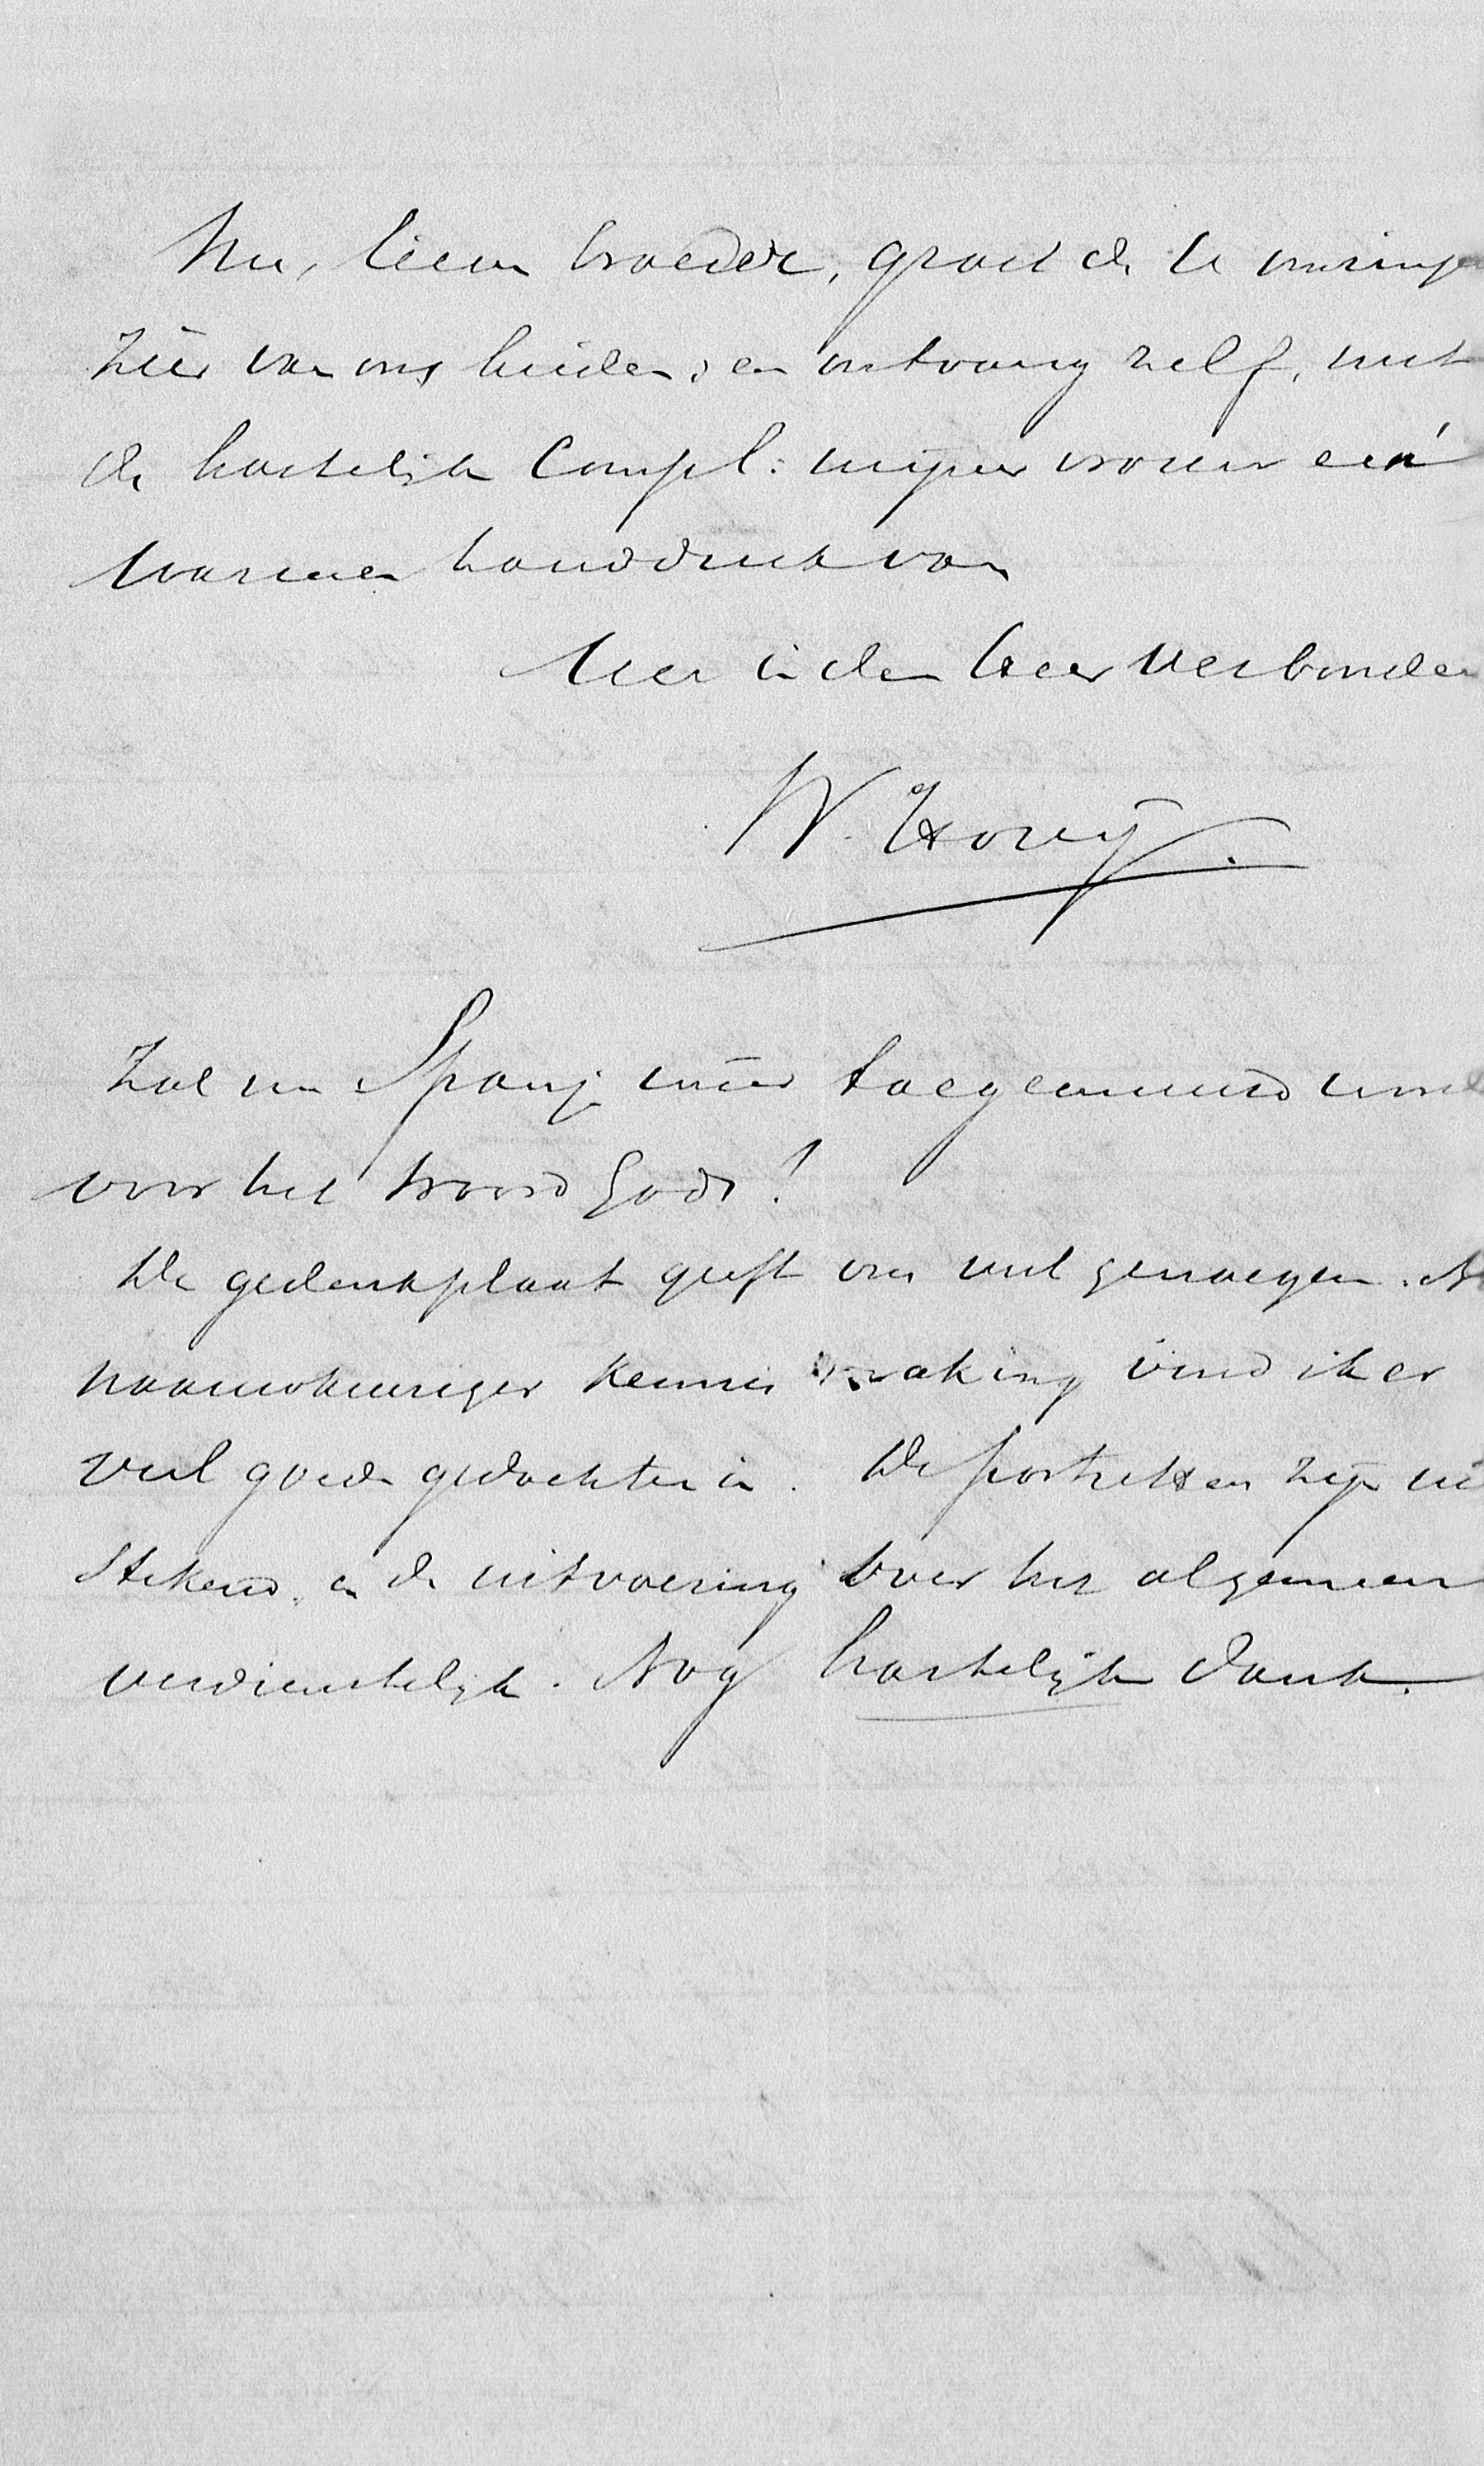 Nu, lieve broeder, groet de
zeer van ons beiden, en ontvang zelf, met
de hartelijke Compl: mijner vrouw een
warmen handdruk van
Uw in den Heer verbonden
W. Hovij.
Zal nu Spanje weer toegemuurd
voor het woord Gods!
De gedenkplaat geeft ons veel genoegen.
naauwkeuriger kennismaking vind ik er
veel goede gedachten in. De portretten zijn
stekend, en de uitvoering over het algemeen
verdienstelijk. Nog hartelijk dank.